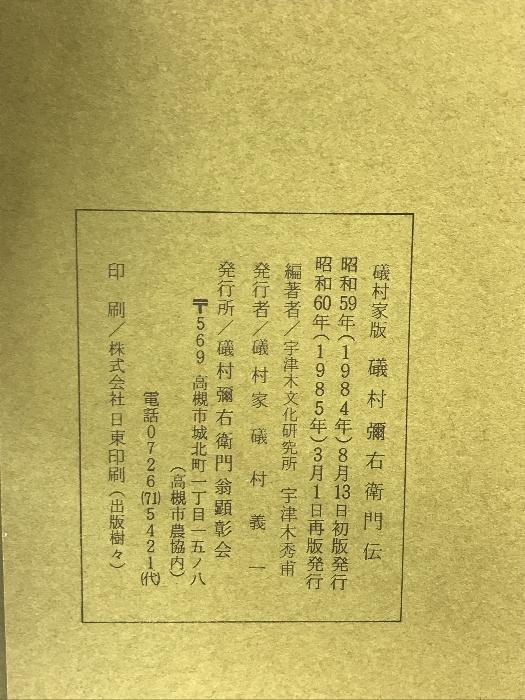 礒村家版　礒村彌右衛門伝
昭和59年(1984年)8月13日初版発行
昭和60年(1985年)3月1日再版発行
編著者／宇津木文化研究所　宇津木秀甫
発行者／礒村家　礒村義一
発行所／礒村彌右衛門翁顕彰会
〒569 高槻市城北町一丁目一五ノ八
(高槻市農協内)
電話0726(71)5421(代)
印刷／株式会社日東印刷(出版樹々)